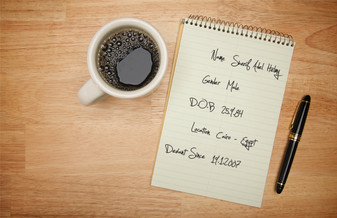 Name Sherif Adel Helmy
Gender Male
DOB 25.7.84
Location Cairo - Egypt
Deviant Since 17.1.2007